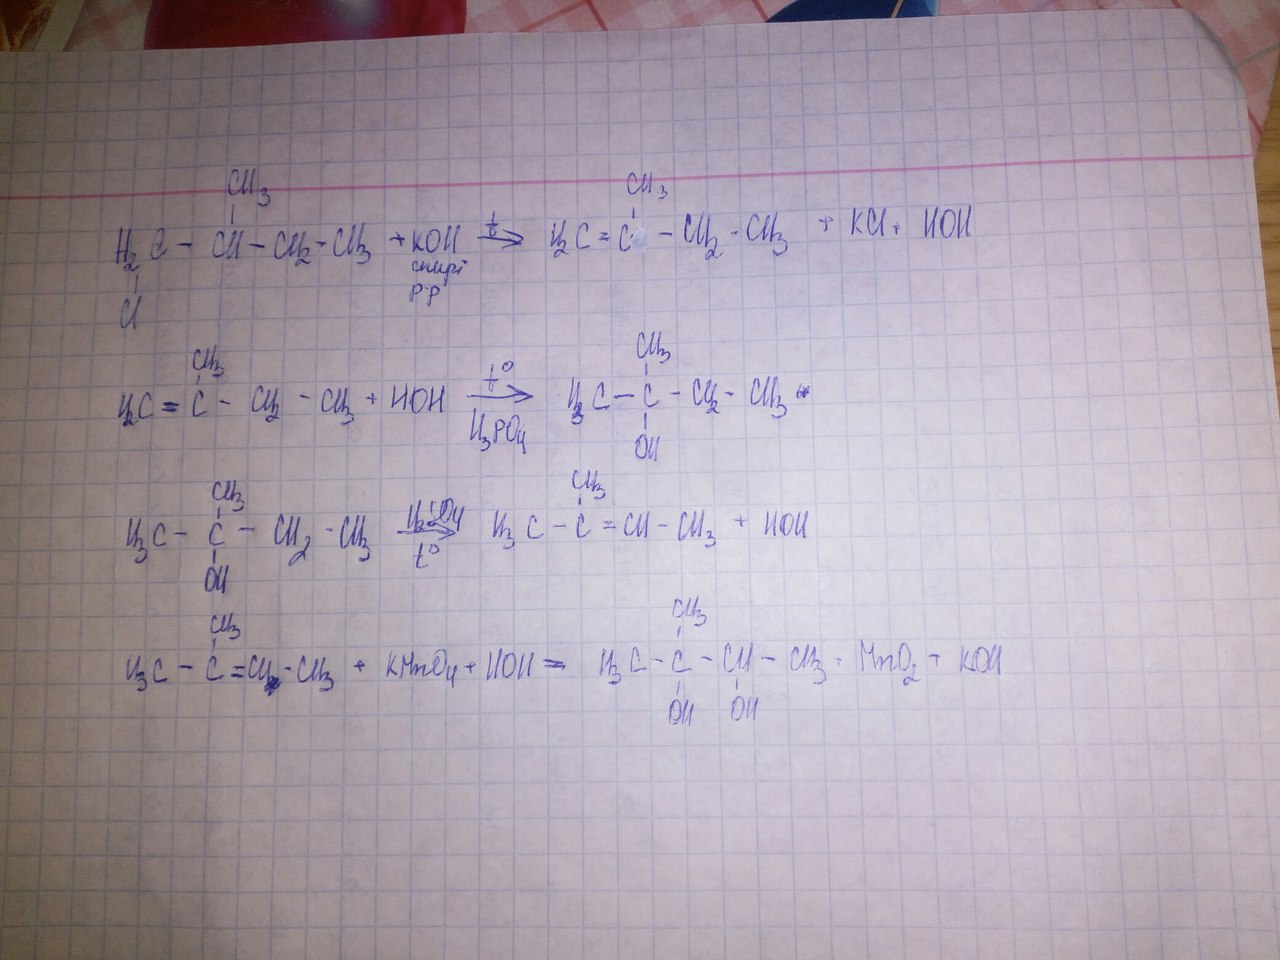 CH3
H2C - CH - CH2 - CH3 + KOH t → H2C = C - CH2 - CH3 + KCl + HOH
Cl
спирт
р-р
CH3
H2C = C - CH2 - CH3 + HOH t° → H3C - C - CH2 - CH3
H3PO4
OH
CH3
H3C - C - CH2 - CH3 H2SO4 → H3C - C = CH - CH3 + HOH
t°
OH
CH3
H3C - C = CH - CH3 + KMnO4 + HOH = H3C - C - CH - CH3 + MnO2 + KOH
OH OH